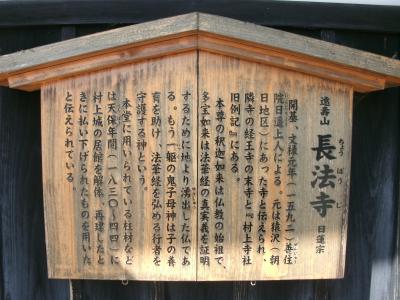 遠壽山
長法寺
ちょうほうじ
日蓮宗
開基、文禄元年(一五九二)善住
院日運上人による。元は猿沢(朝
日地区)にあった寺と伝えられ、
隣寺の経王寺の末寺と『村上寺社
旧例記』にある。
本尊の釈迦如来は仏教の始祖で、
多宝如来は法華経の真実義を証明
するために地より湧出した仏であ
る。もう一躯の鬼子母神は子の養
育を助け、法華経を弘める行者を
守護する神という。
本堂に用いられている柱材など
は天保年間(一八三〇~四四)に
村上城の居館を解体、再建したと
きに払い下げられたものを用いた
と伝えられている。